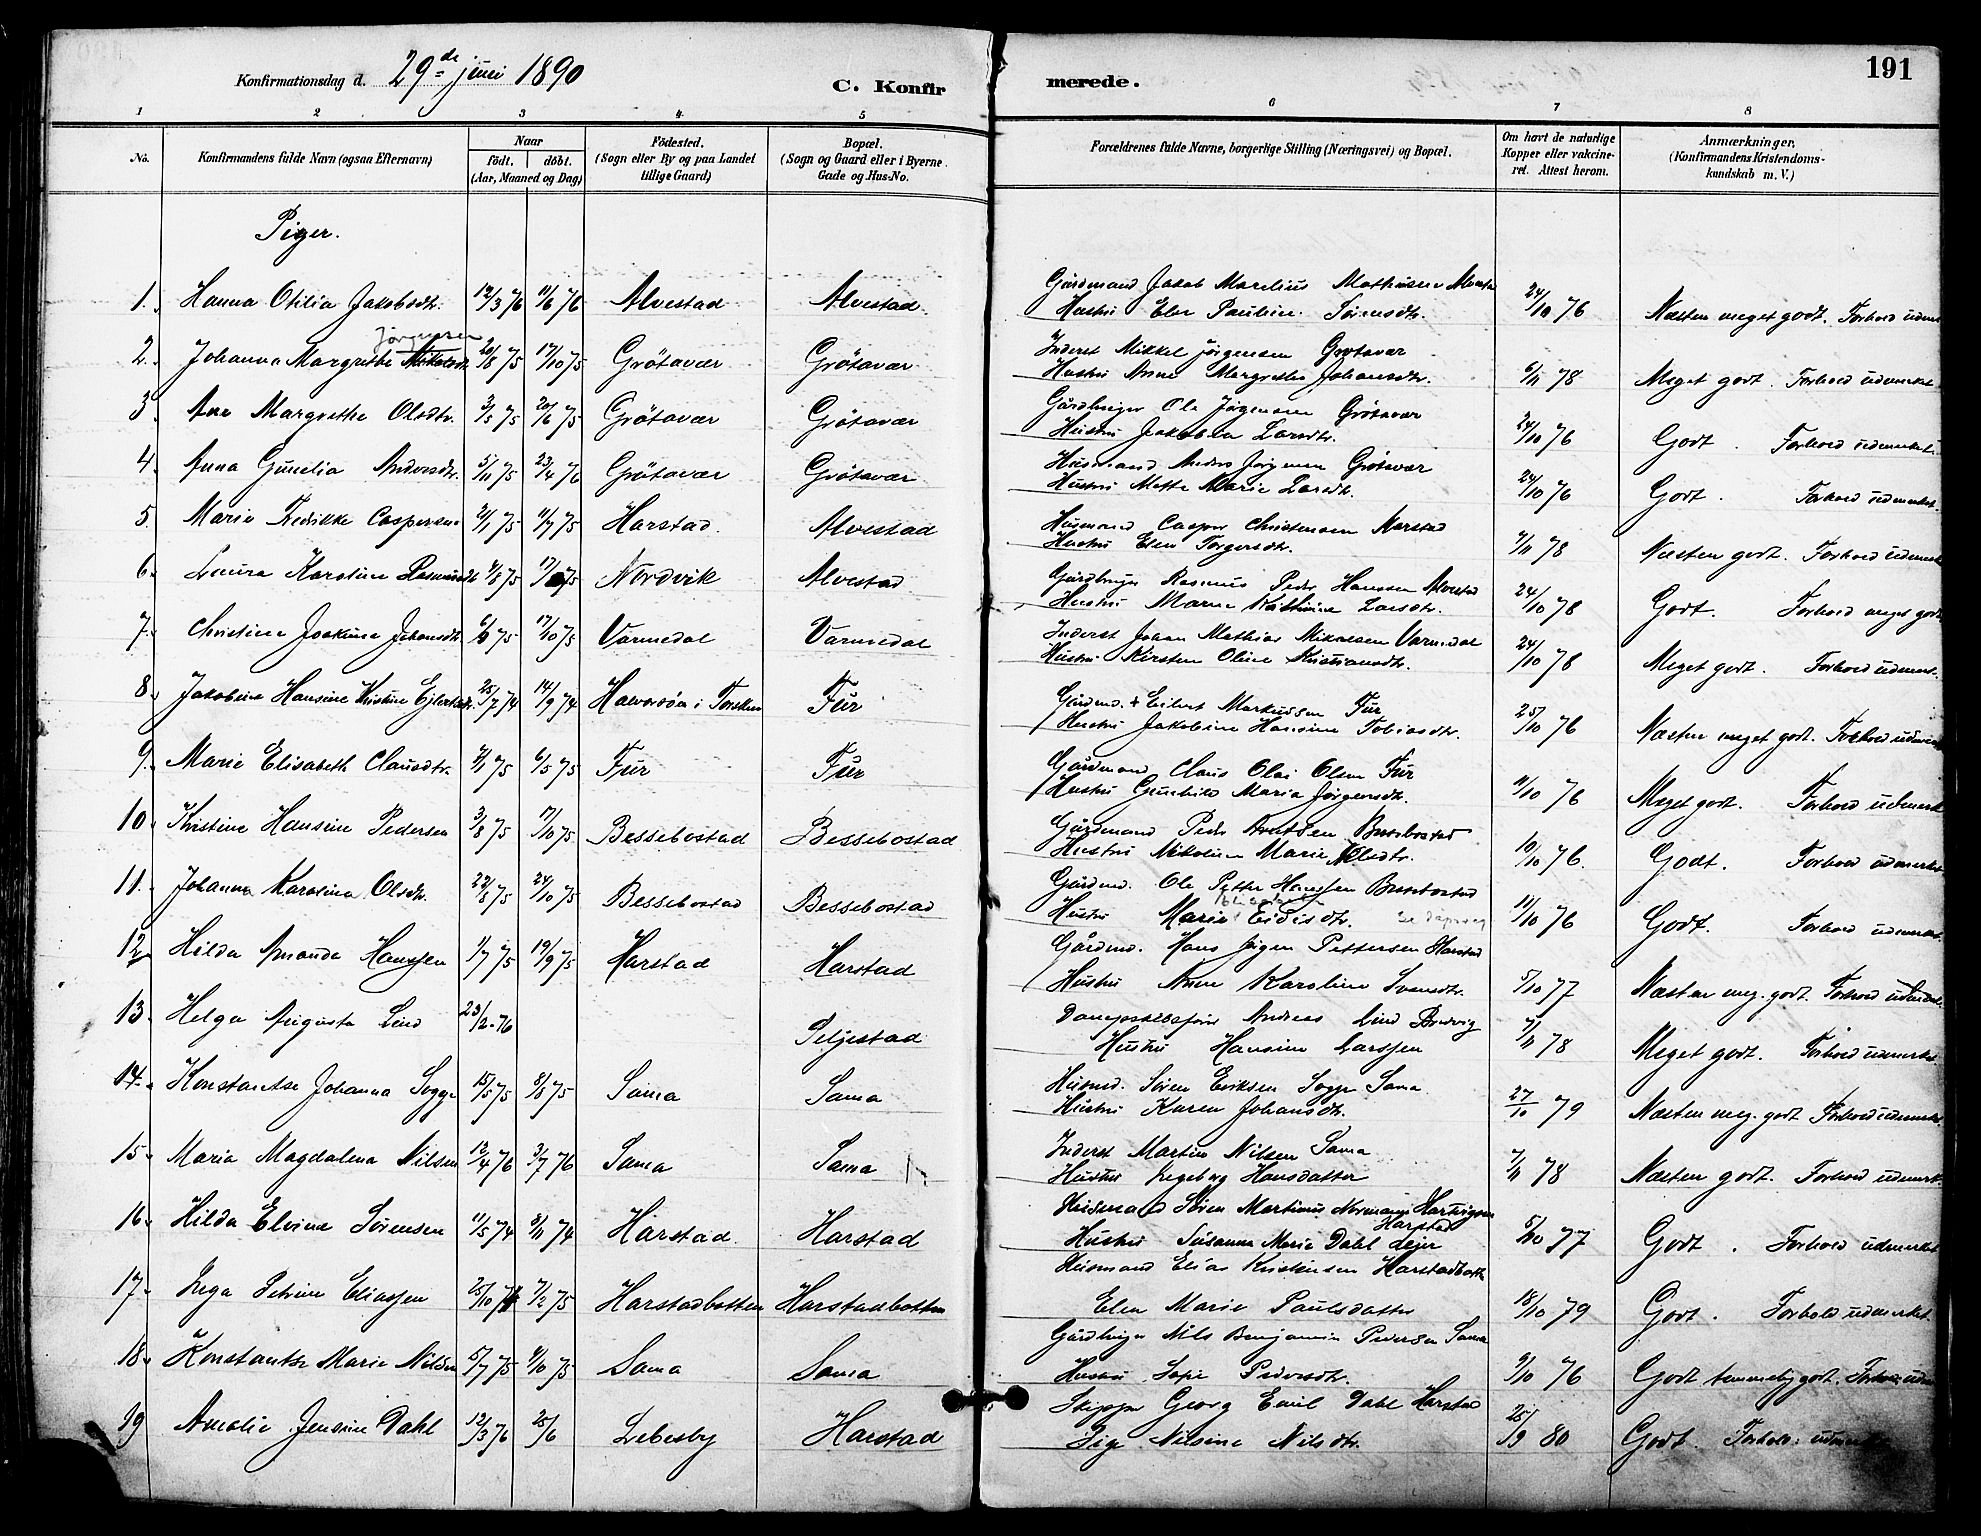 Konfirmationsdag d. 29de juni 1890
C. Konfirmerede.
191
1 2 3 4 5 6 7 8
No. Konfirmandens fulde Navn (ogsaa Efternavn) Naar födt. döbt. (Aar, Maaned og Dag) Födested. (Sogn eller By og paa Landet tillige Gaard) Bopæl. (Sogn og Gaard eller i Byerne Gade og Hus-No. Forældrenes fulde Navne, borgerlige Stilling (Næringsvei) og Bopæl. Om havt de naturlige Kopper eller vakcineret. Attest herom. Anmærkninger. (Konfirmandens Kristendomskundskab m. V.)
Piger.
1. Hanna Otilia Jakobsdtr. 12/3 76 11/6 76 Alvestad Alvestad. Gårdmand Jakob Marelius Mathisen
Hustru Elen Pauline Sörensdtr. 24/10 76 Næsten meget godt. Forhold
Jörgensen
2. Johanna Margrethe 20/8 75 17/10 75 Grötavær Grötavær Inderst Mikkel Jörgensen Grötavær
Hustru Anne Margrethe Johansdtr. 6/11 78 Meget godt. Forhold udmerket
3. Ane Margrethe Olsdtr. 3/5 75 20/6 75 Grötavær Grötavær Gårdbruger Ole Jörgensen Grötavær
Hustru Jakobea Larsdtr. 24/10 76 Godt. Forhold udmerket
4. Anna Gunelia Andersdtr. 5/11 75 23/4 76 Grötavær Grötavær Husmand Anders Jörgensen Grötavær
Hustru Mette Marie Larsdtr. 24/10 76 Godt. Forhold udmerket.
5. Marie Fredrikke Caspersen 21/1 75 11/7 75 Harstad. Alvestad Husmand Casper Christensen Harstad
Hustru Elen Torgersdtr. 7/11 78 Næsten godt. Forhold udmerk
6. Laura Karoline 4/8 75 Nordvik Alvestad Gårdbruger Rasmus Peder Hanssen Alvestad
Hustru Maren Kathrine Larsdtr. 24/10 78 Godt. Forhold meget godt
7. Christine Joakima Johansdtr 75 17/10 75 Varmedal Varmedal Inderst Johan Mathias Mikalsen Varmedal
Hustru Kirsten Oline Kristiansdtr. 24/10 78 Meget godt. Forhold udmerk.
8. Jakobine Hansine Kristine Ejlertsdtr. 25/7 74 14/9 74 Halvorsöen i Torsken Fur Gårdmd. + Eilert Markussen Fur
Hustru Jakobine Hansine Tobiasdtr. 25/10 76 Næsten meget godt. Forhold
9. Marie Elisabeth Clausdtr. 4/1 75 6/5 75 Fur Fur Gårdmand Claus Olai Olsen Fur
Hustru Gunhild Maria Jörgensdtr. 11/10 76 Meget godt. Forhold udmerk
10. Kristine Hansine Pedersen 3/8 75 17/10 75 Bessebostad Bessebostad Gårdmand Peder Knutsen Bessebostad
Hustru Nikoline Marie 10/10 76. Godt. Forhold udmerket
11. Johanna Karolina Olsdtr. 22/8 75 24/10 75 Bessebostad Bessebostad Gårdmd. Ole Petter Hanssen Bessebostad
Hustru Marie Eidisdtr. 11/10 76 Godt. Forhold udmerket.
12. Hilda Amanda Hanssen 1/7 75 19/9 75 Harstad Harstad Gårdmd. Hans Jörgen Pettersen Harstad
Hustru Anne Karoline Svensdtr. 5/10 77 Næsten meg. godt. Forhold
13. Helga Augusta Lind 23/2 76 Seljestad Andreas Lind
Hustru Hansine Larssen 7/11 78 Meget godt. Forhold udmerket
14. Konstantse Johanna Sogge 15/5 75 8/8 75 Sama Sama Husmd. Sören Eriksen Sogge Sama
Hustru Karen Johansdtr. 27/10 79 Næsten meg. godt Forhold udmerket.
15. Maria Magdalena Nilsen 12/4 76 3/7 76 Sama Sama Inderst Martin Nilsen Sama
Hustru Ingeborg Hansdatter 7/11 78 Næsten godt. Forhold udmerk.
16. Hilda Elvine Sörensen 11/5 74 8/11 74 Harstad. Harstad Husmand Sören Martinus Normann Hartvigsen
Harstad
Hustru Susanna Marie Dahl 5/10 77 Godt. Forhold udmerket
17. Inga Petrine Eliassen 25/10 74 7/2 75 Harstadbotten Harstadbotten Husmand Elias Kristensen Harstadbotten
Elen Marie Paulsdatter 18/10 79 Godt. Forhold udmerket.
18. Konstantse Marie Nilsen 5/7 75 4/10 75 Sama Sama Gårdbruger Nils Benjamin Pedersen Sama
Hustru Sofie Pedersdtr. 9/10 76 Godt temmelig godt. Forhold
19 Amalie Jensine Dahl 12/3 76 25/6 Lebesby Harstad Skipper Georg Emil Dahl Harstad
Pige Nilsine Nilsdtr. 25/9 80 Godt. Forhold